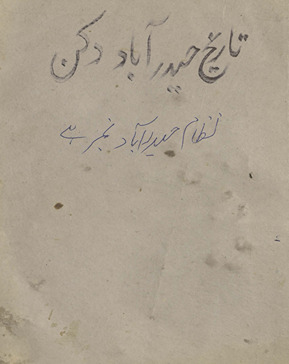 تاریخ حیدرآباد دکن
نظام حیدرآباد نمبر ہے